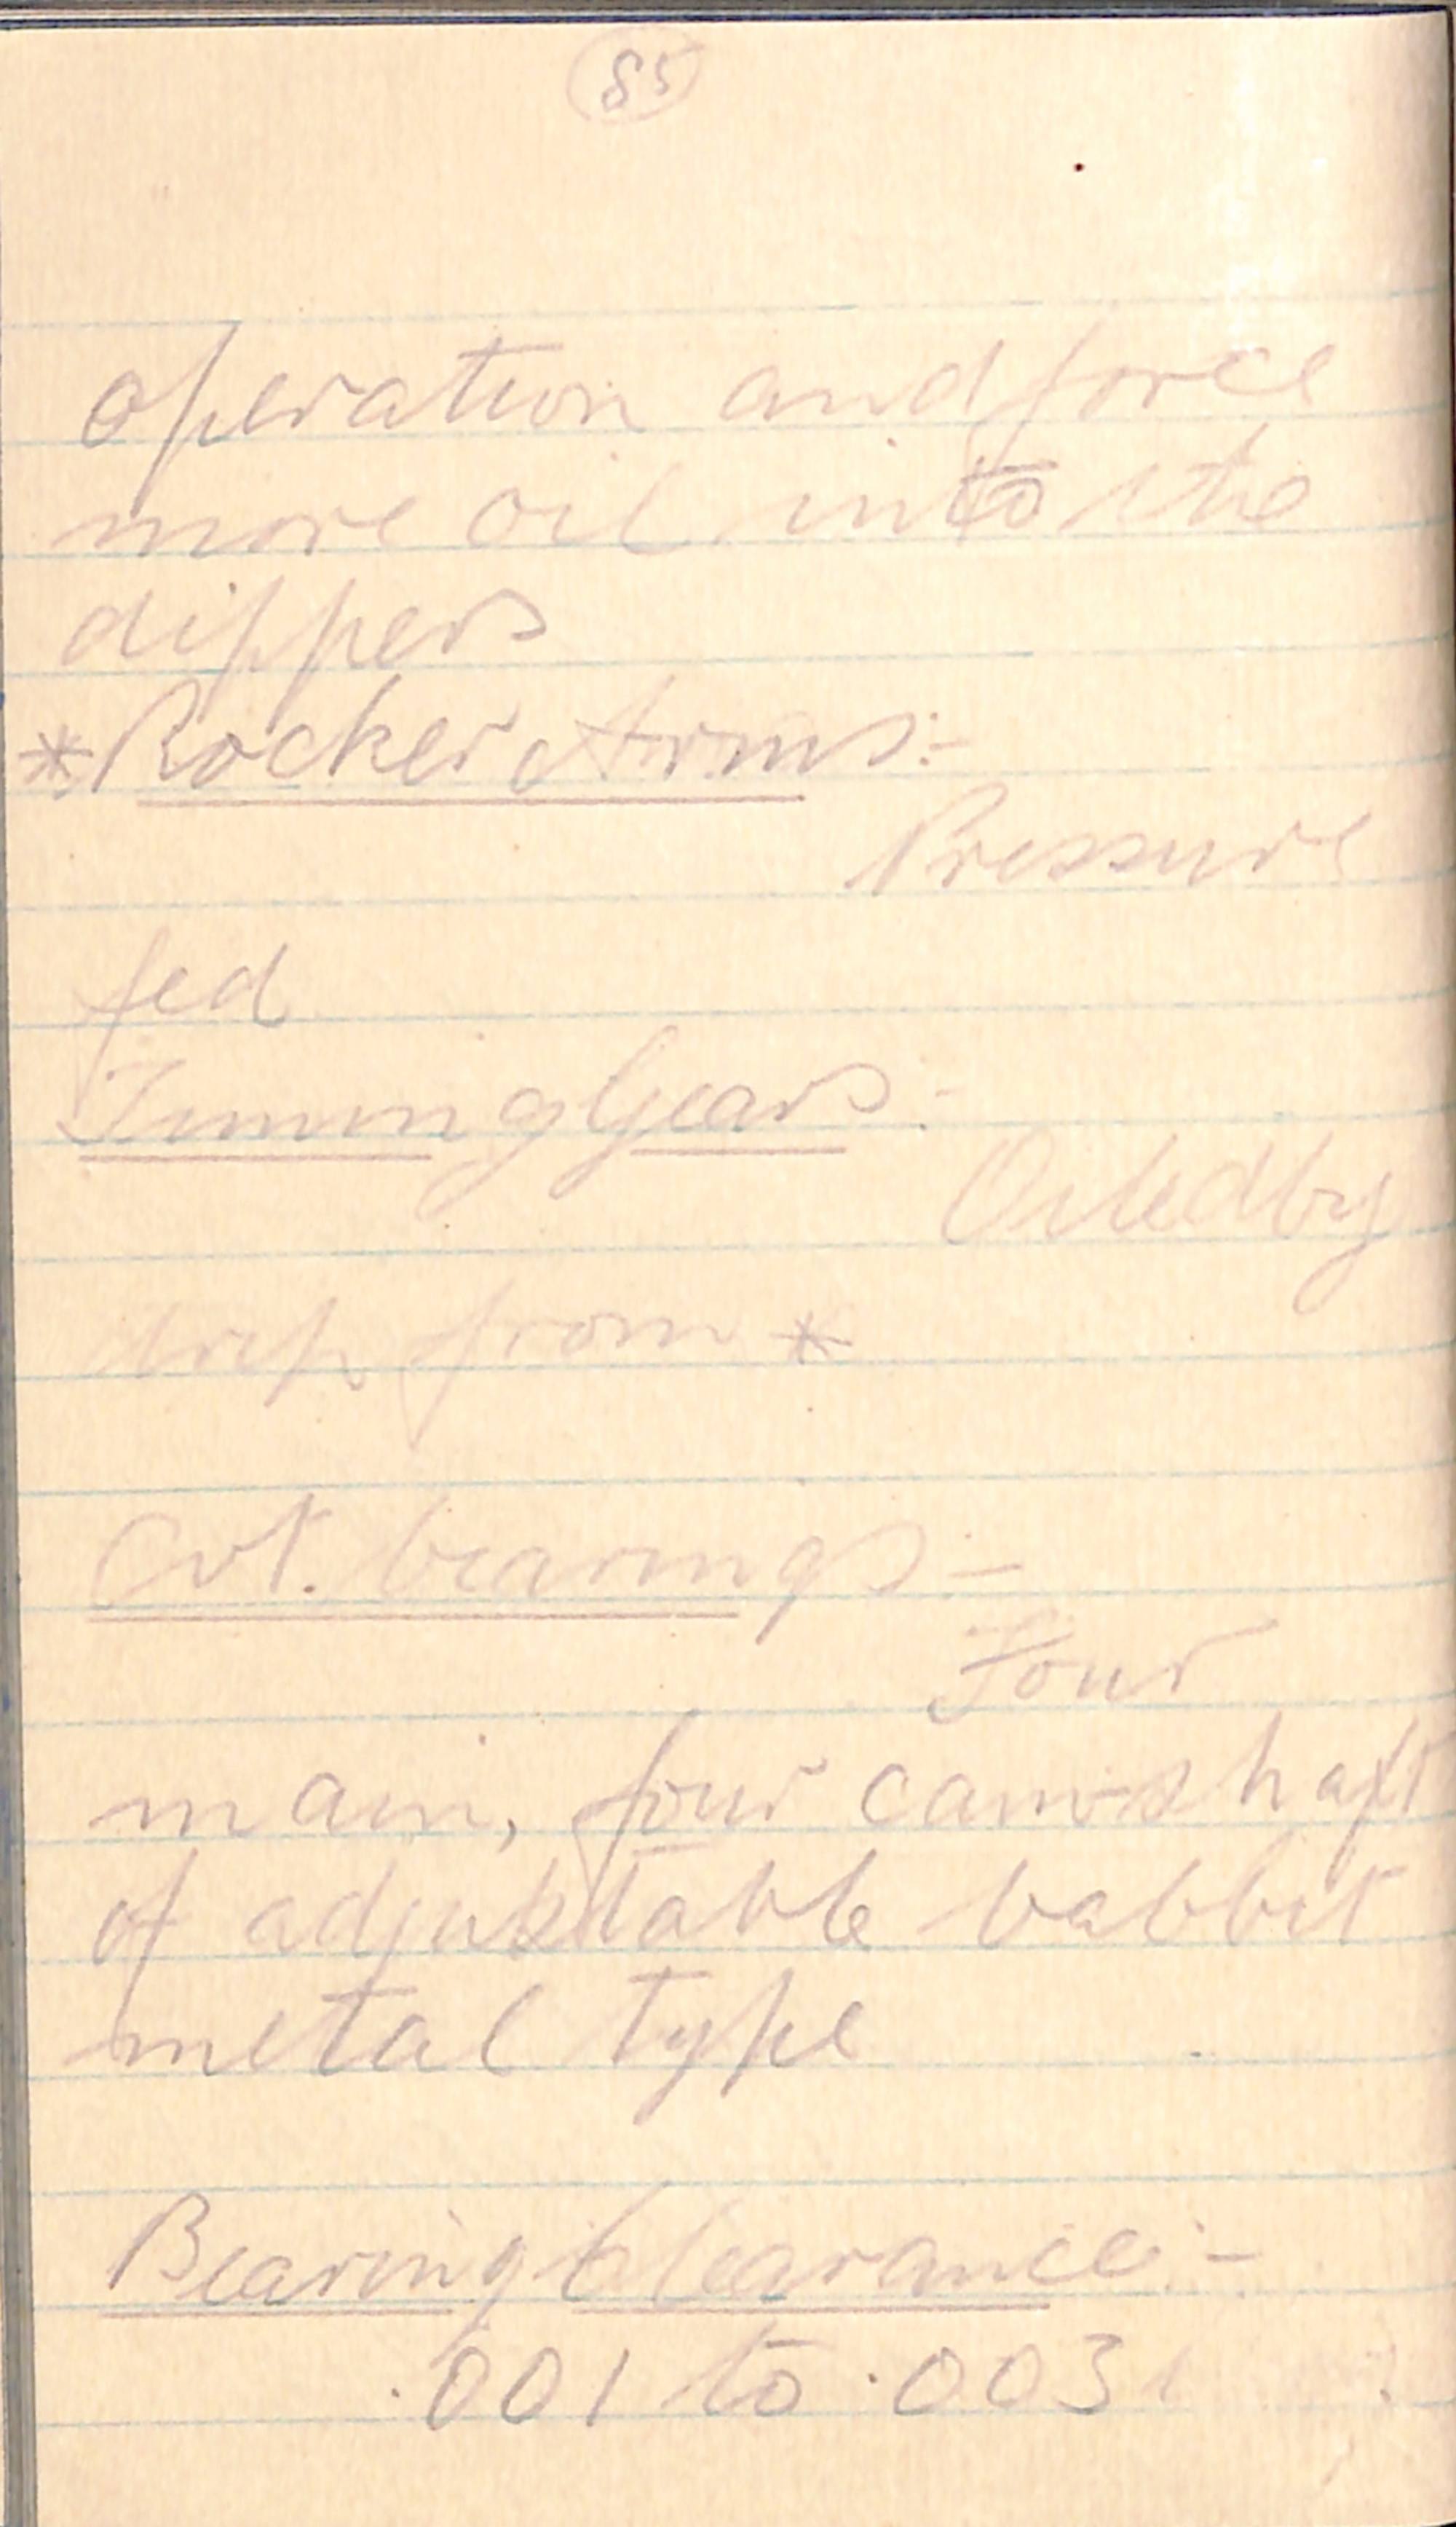 85
operation and force
more oil into the
dippers
* Rocker Arms:-
Pressure
fed
Timing Gears:-
Oiled by
drip from *
Cvt. bearings:-
Four
main, four cam-shaft
of adjustable babbit
metal type
Bearing Clearance:-
.001 to .003